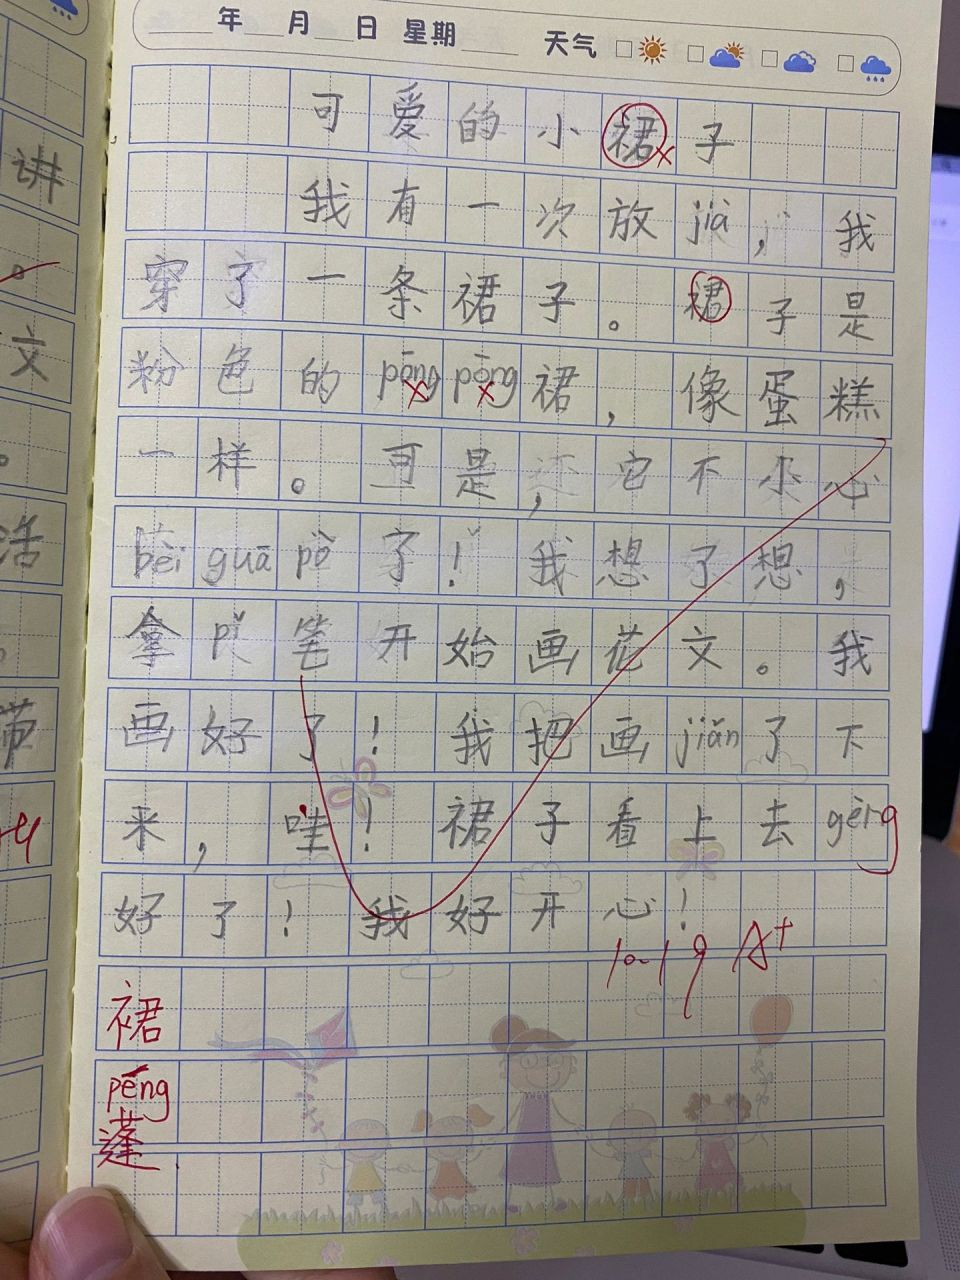 年 月 日 星期 天气
可爱的小裙子
我有一次放jià，我
穿了一条裙子。裙子是
粉色的pōngpōng裙，像蛋糕
一样。可是，它不小心
bèi guā pò了！我想了想，
拿qǐ笔开始画花文。我
画好了！我把画jiǎn了下
来，哇！裙子看上去gèng
好了！我好开心！
10-19 A+
裙
péng
蓬
讲
。
文
。
活
带